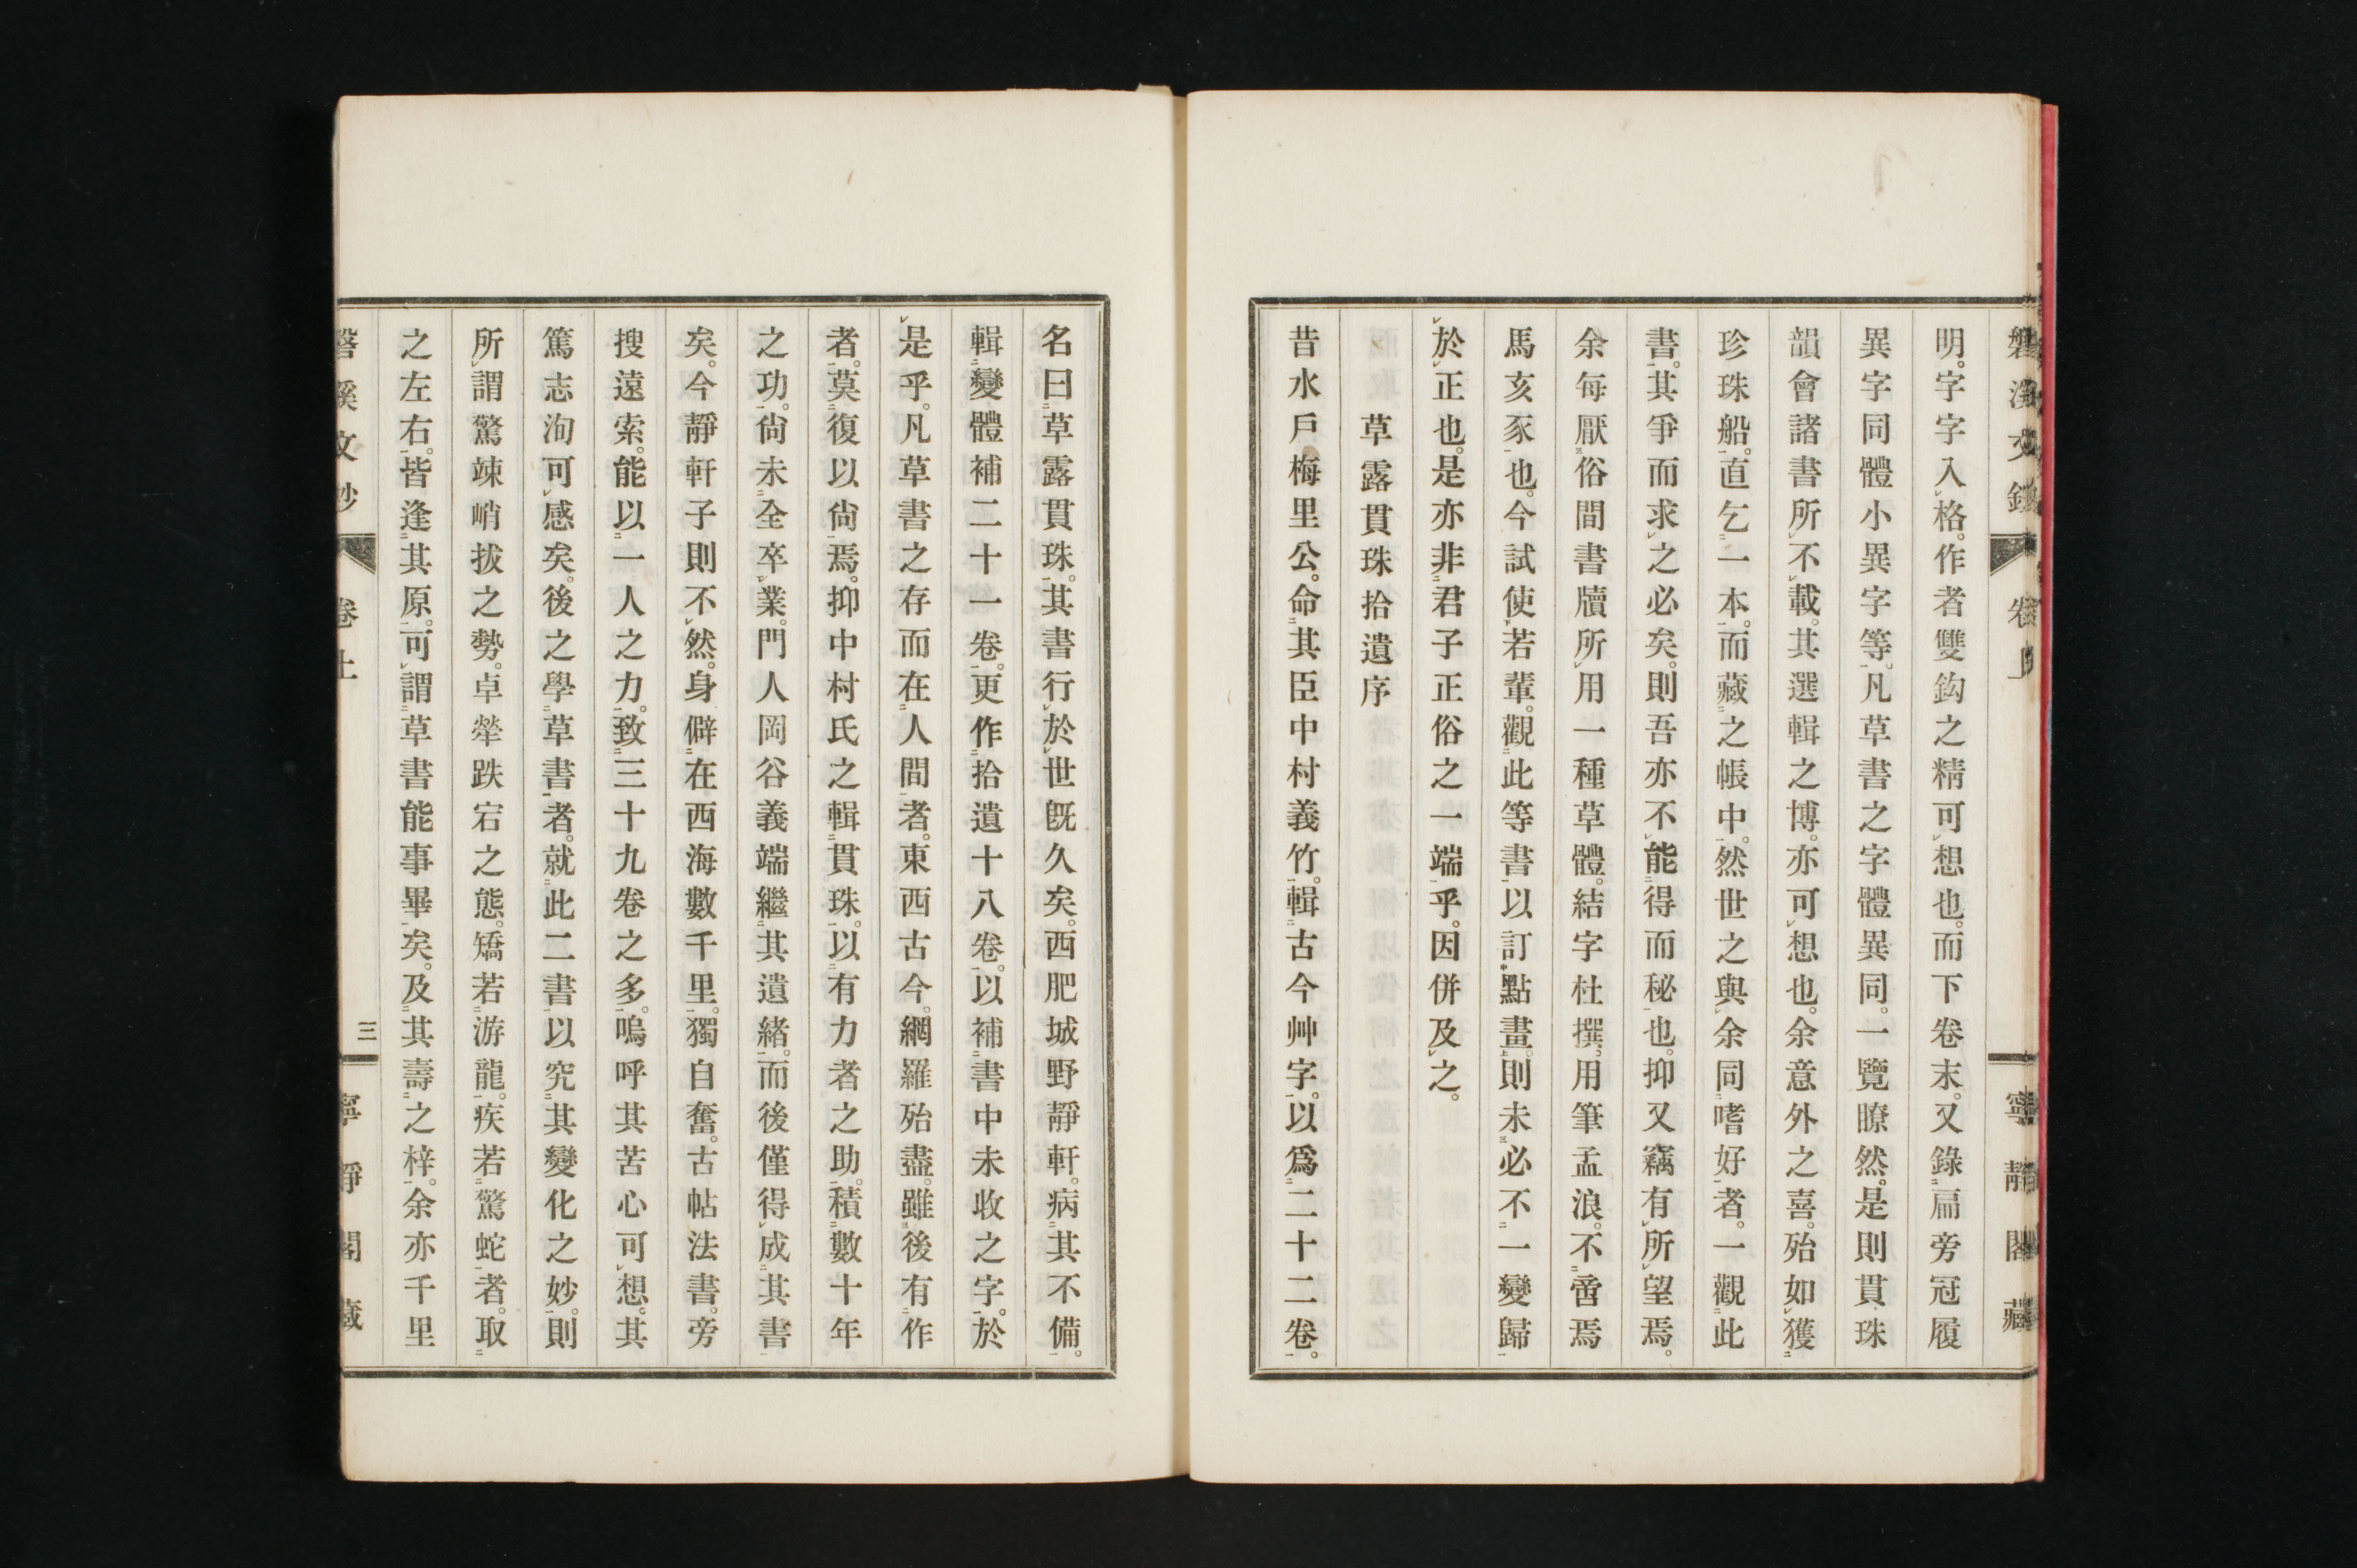 磐溪文鈔 卷上 寧靜閣藏
明。字字入格。作者雙鈎之精可想也。而下卷末。又錄扁旁冠履
異字同體小異字等。凡草書之字體異同。一覽瞭然。是則貫珠
韻會諸書所不載。其選輯之博。亦可想也。余意外之喜。殆如獲
珍珠船。直乞一本。而藏之帳中。然世之與余同嗜好者。一觀此
書。其爭而求之必矣。則吾亦不能得而秘也。抑又竊有所望焉。
余每厭俗間書牘所用一種草體。結字杜撰。用筆孟浪。不啻焉
馬亥豕也。今試使若輩。觀此等書以訂點畫。則未必不一變歸
於正也。是亦非君子正俗之一端乎。因併及之。
草露貫珠拾遺序
昔水戶梅里公。命其臣中村義竹。輯古今艸字。以爲二十二卷。
名曰草露貫珠。其書行於世既久矣。西肥城野靜軒。病其不備。
輯變體補二十一卷。更作拾遺十八卷。以補書中未收之字。於
是乎。凡草書之存而在人間者。東西古今。網羅殆盡。雖後有作
者。莫復以尙焉。抑中村氏之輯貫珠。以有力者之助。積數十年
之功。尙未全卒業。門人岡谷義端繼其遺緒。而後僅得成其書
矣。今靜軒子則不然。身僻在西海數千里。獨自奮。古帖法書。旁
搜遠索。能以一人之力。致三十九卷之多。嗚呼其苦心可想。其
篤志洵可感矣。後之學草書者。就此二書。以究其變化之妙。則
所謂驚竦峭拔之勢。卓犖跌宕之態。矯若游龍。疾若驚蛇者。取
之左右。皆逢其原。可謂草書能事畢矣。及其壽之梓。余亦千里
磐溪文鈔 卷上 三 寧靜閣藏